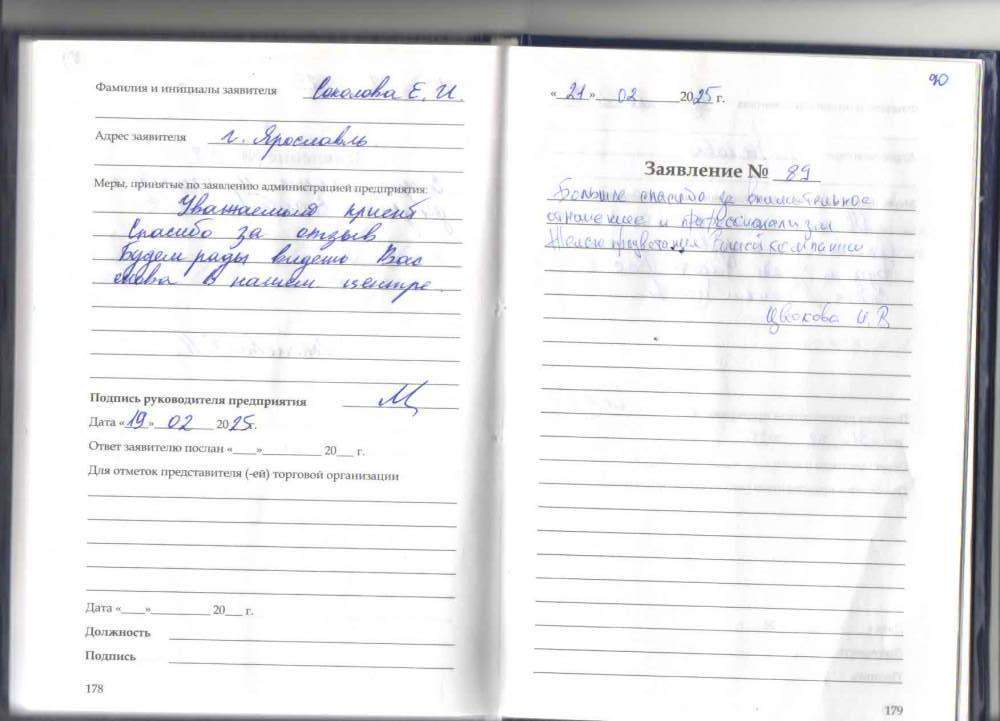 Фамилия и инициалы заявителя Соколова Е. И.
Адрес заявителя г. Ярославль
Меры, принятые по заявлению администрацией предприятия:
Спасибо за отзыв
Будем рады видеть Вас
снова в нашем центре.
Подпись руководителя предприятия
Дата «19» 02 2025г.
Ответ заявителю послан «____»__________ 20___ г.
Для отметок представителя (-ей) торговой организации
Дата «____»__________ 20___ г.
Должность
Подпись
178
90
«21» 02 2025 г.
Заявление № 89
Большое спасибо за внимательное
отношение и профессионализм
Желаю процветания Вашей компании
И. В
179